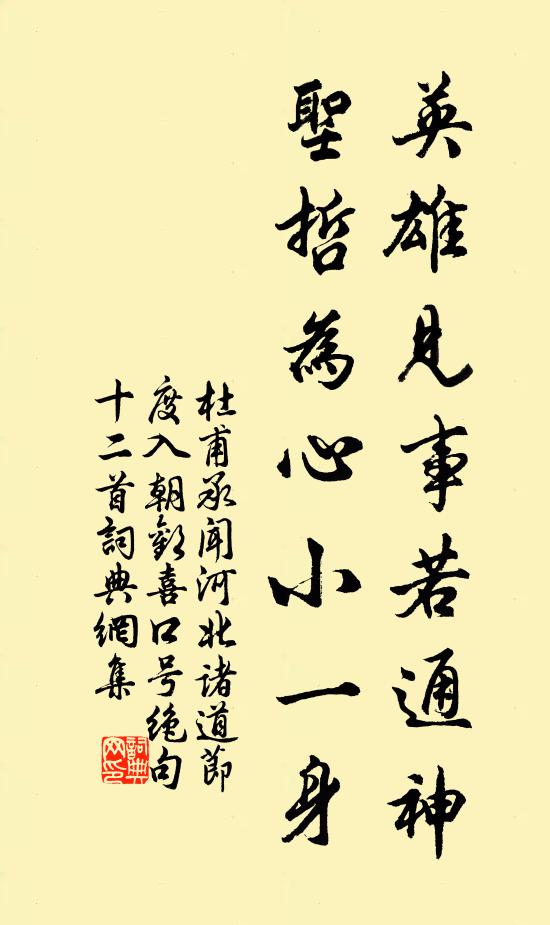 英雄見事若通神
聖哲為心小一身
杜甫承聞河北諸道節
度入朝歡喜口号绝句
十二首詞典網集
詞典
网印